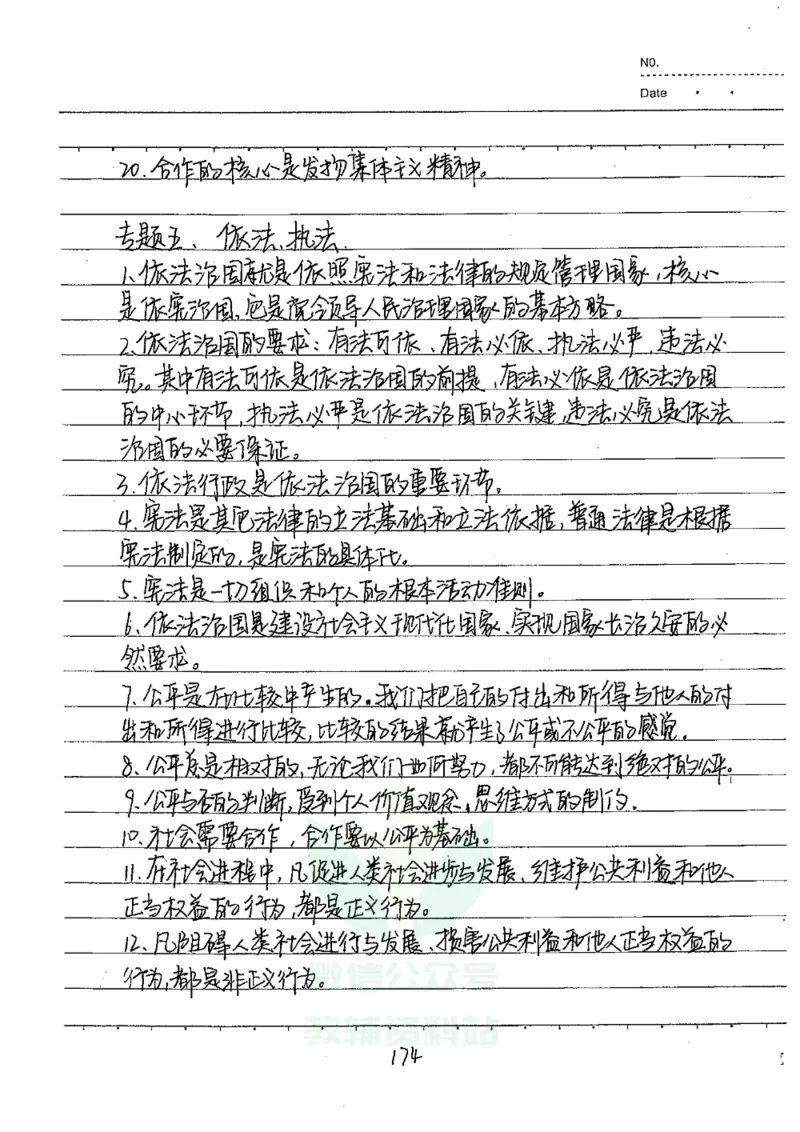 NO.
Date
20.合作的核心是发扬集体主义精神。
专题五、依法、执法
1.依法治国就是依照宪法和法律的规定管理国家,核心
是依宪治国,它是党领导人民治理国家的基本方略。
2.依法治国的要求:有法可依、有法必依、执法必严、违法必
究。其中有法可依是依法治国的前提,有法必依是依法治国
的中心环节,执法必严是依法治国的关键,违法必究是依法
治国的必要保证。
3.依法行政是依法治国的重要环节。
4.宪法是其他法律的立法基础和立法依据,普通法律是根据
宪法制定的,是宪法的具体化。
5.宪法是一切组织和个人的根本活动准则。
6.依法治国是建设社会主义现代化国家、实现国家长治久安的必
然要求。
7.公平是在比较中产生的。我们把自己的付出和所得与他人的付
出和所得进行比较,比较的结果就产生了公平或不公平的感觉.
8.公平总是相对的,无论我们如何努力,都不可能达到绝对的公平。
9.公平与否的判断,受到个人价值观念、思维方式的制约.
10.社会需要合作,合作要以公平为基础。
11.在社会进程中,凡促进人类社会进步与发展、维护公共利益和他人
正当权益的行为,都是正义行为。
12.凡阻碍人类社会进行与发展、损害公共利益和他人正当权益的
行为,都是非正义行为。
微信公众号
教辅资料站
174